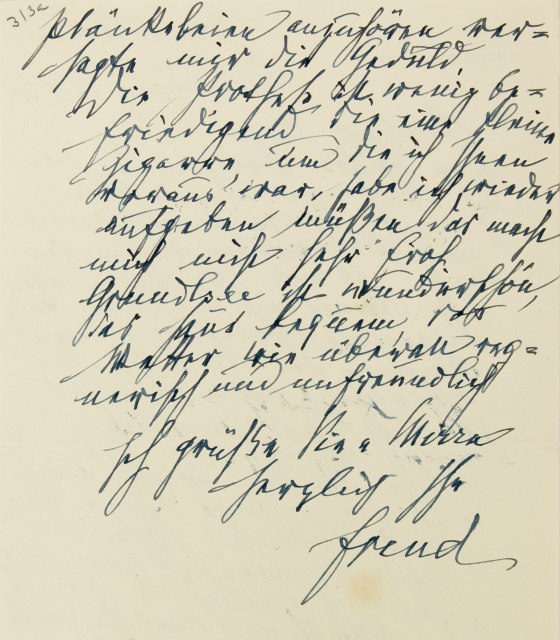 313a
Plänkeleien anzuhören ver=
sagte mir die Geduld.
Die Prothese ist wenig be=
friedigend, die eine kleine
Zigarre um die ich Ihnen
voraus war, habe ich wieder
aufgeben müßen das macht
mich nicht sehr froh
Grundlsee ist wunderschön,
das Haus bequem, das
Wetter wie überall reg=
nerisch und unfreundlich
Ich grüße Sie u Mirra
herzlich Ihr
Freud